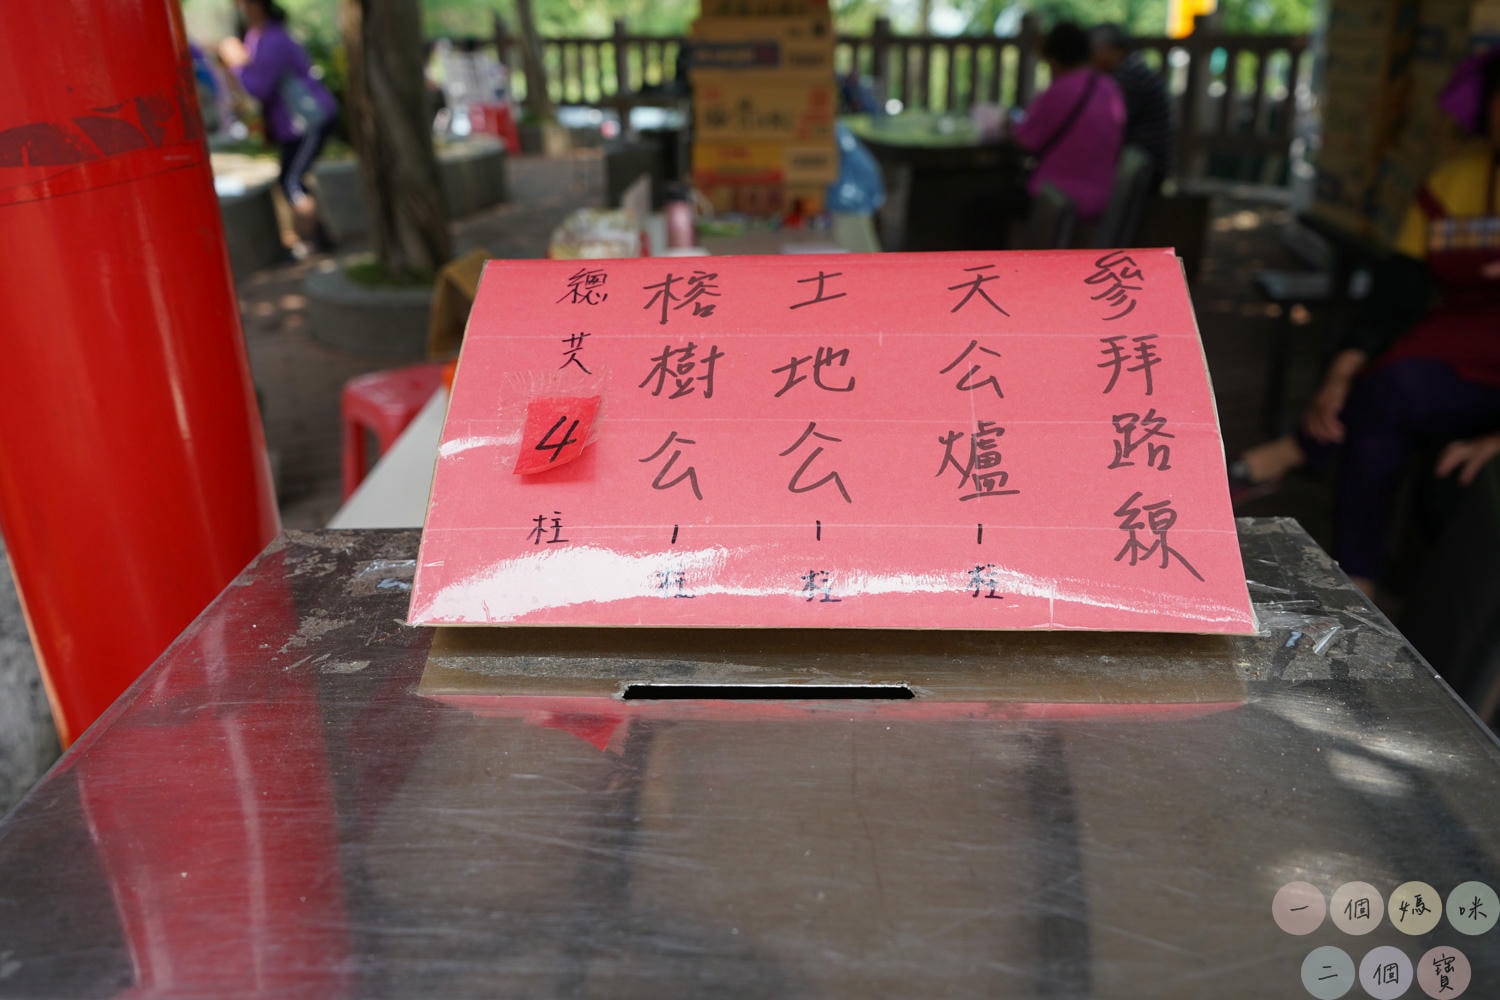 參拜路線
天公爐1柱
土地公1柱
榕樹公1柱
總共4柱
一個媽咪
二個寶